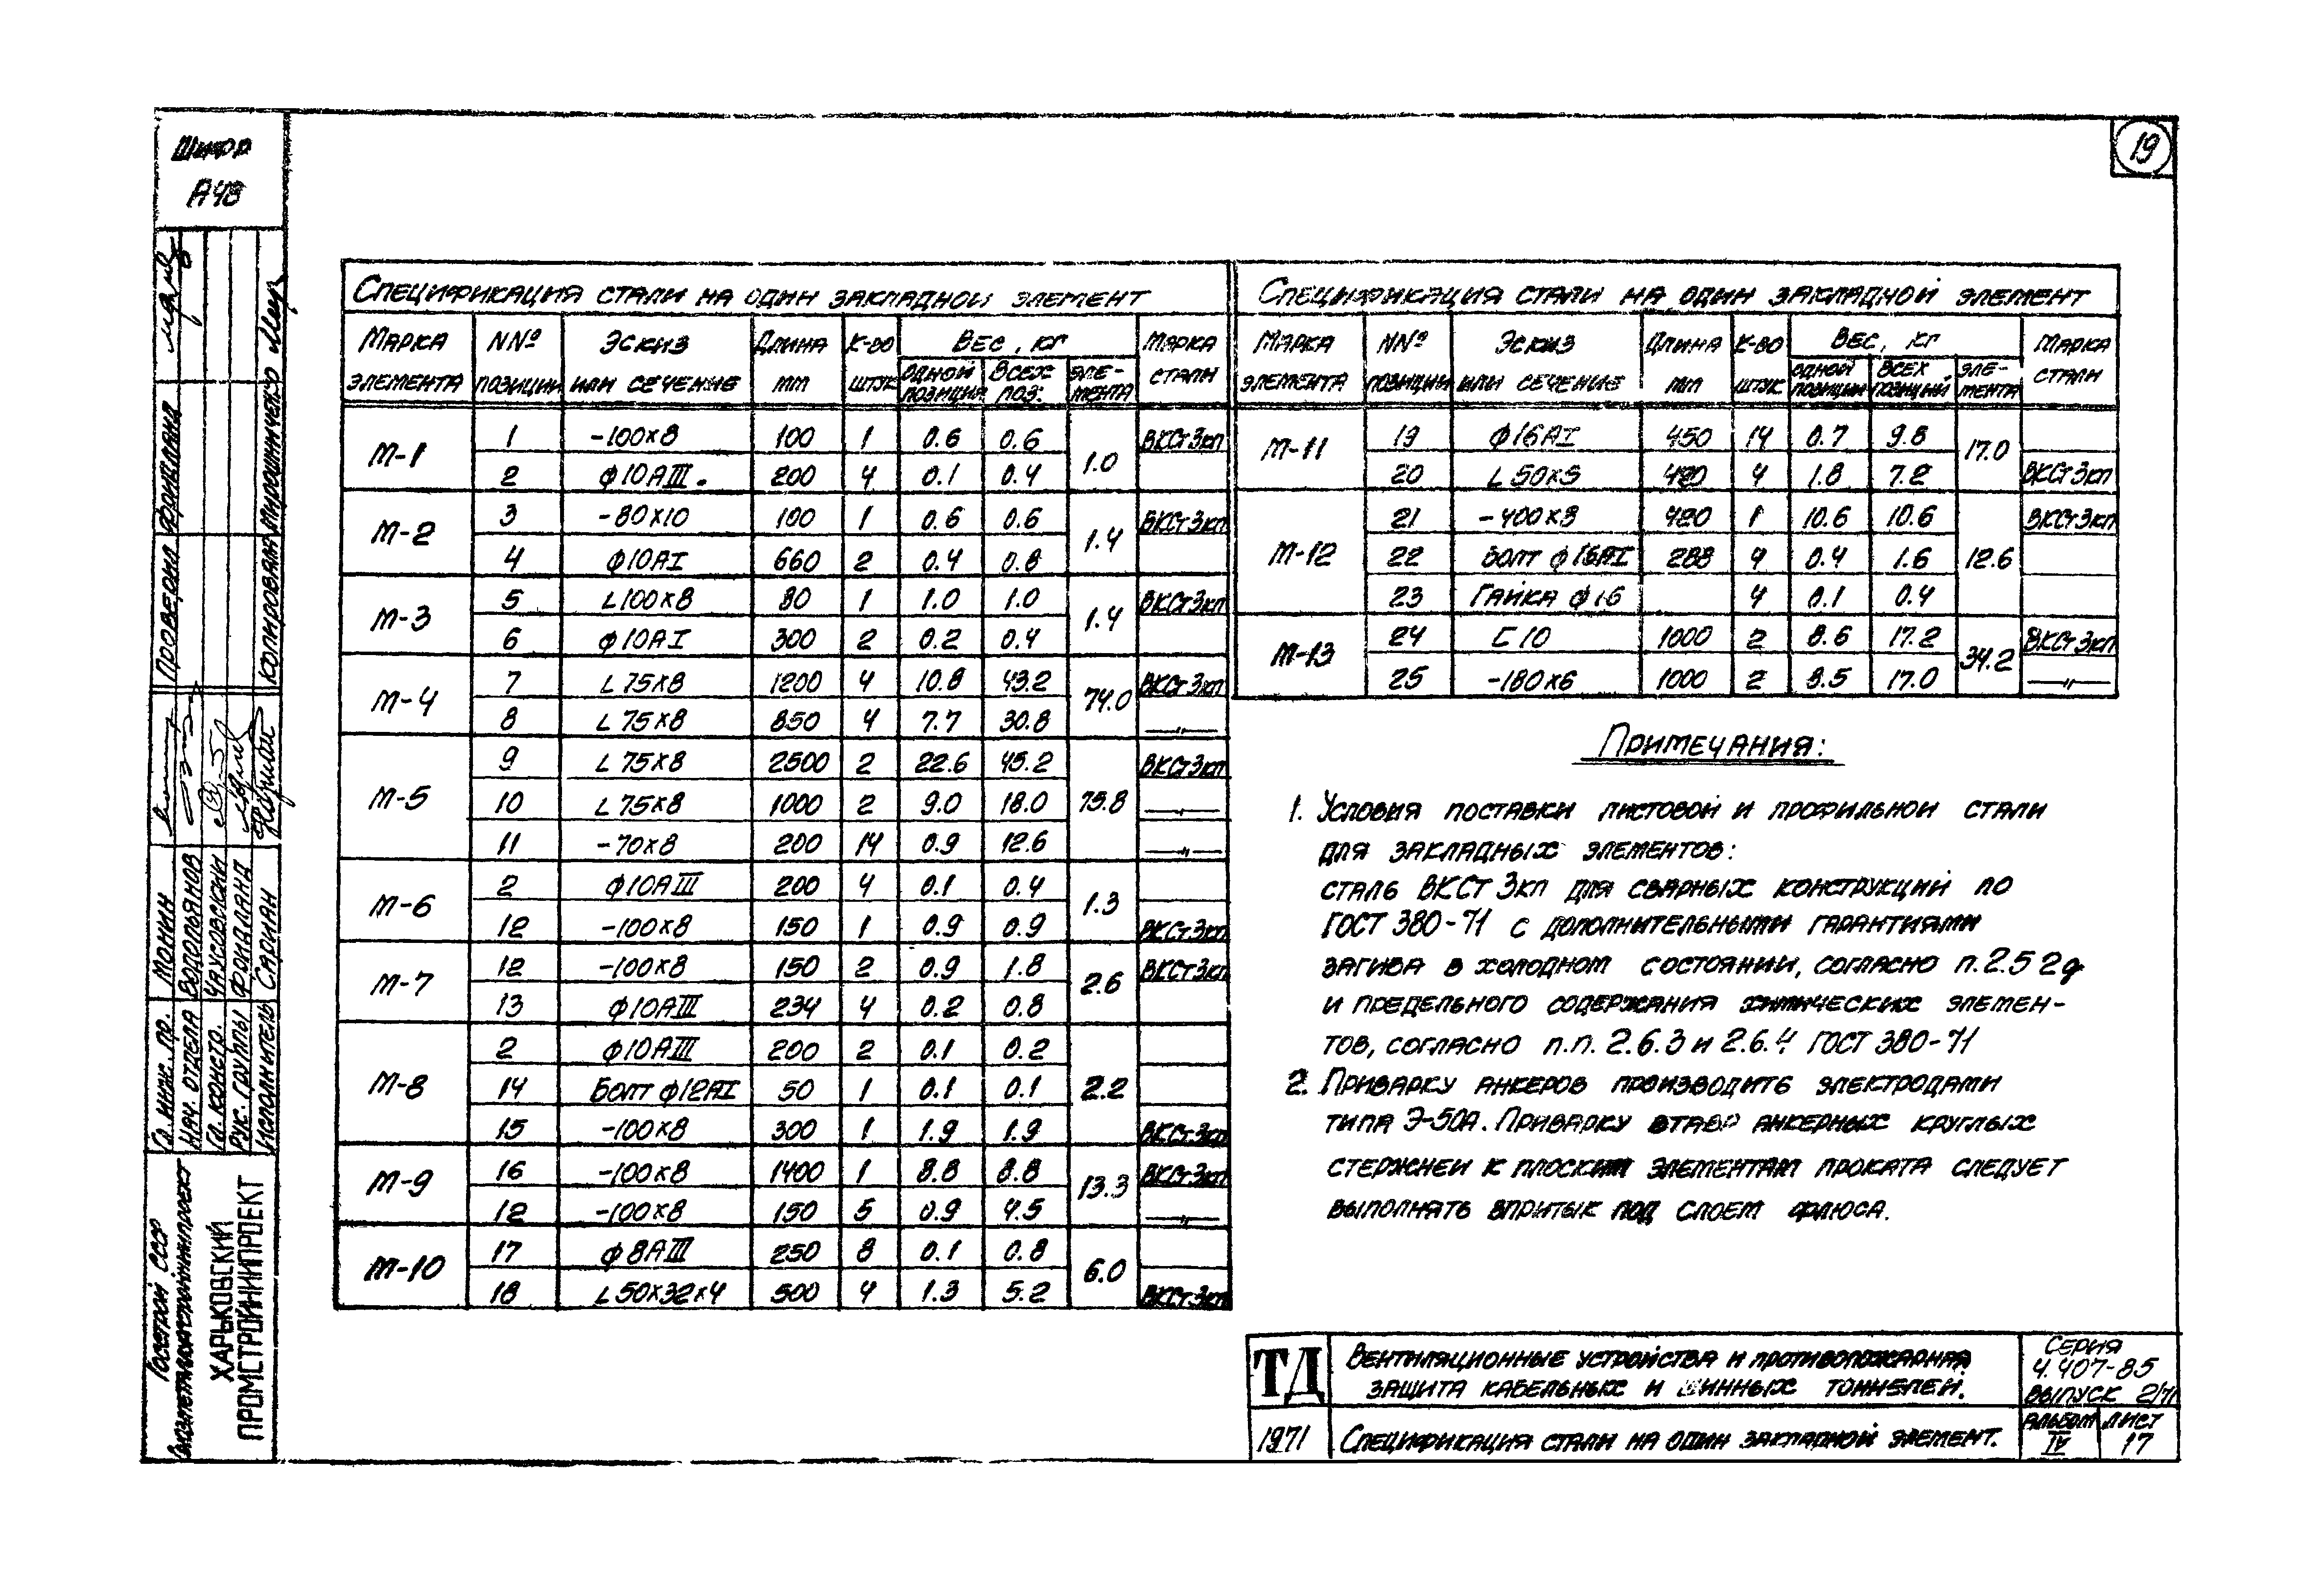 19
Шифр
А48
Спецификация стали на один закладной элемент
Марка элемента | NNº позиции | Эскиз или сечение | Длина мм | К-во штук | Вес, кг | Марка стали
одной позиции | Всех поз. | эле-мента
М-1 | 1 | -100x8 | 100 | 1 | 0.6 | 0.6 | 1.0 | ВКСт3кп
2 | ф10АIII | 200 | 4 | 0.1 | 0.4
М-2 | 3 | -80x10 | 100 | 1 | 0.6 | 0.6 | 1.4 | ВКСт3кп
4 | ф10АI | 660 | 2 | 0.4 | 0.8
М-3 | 5 | L100x8 | 80 | 1 | 1.0 | 1.0 | 1.4 | ВКСт3кп
6 | ф10АI | 300 | 2 | 0.2 | 0.4
М-4 | 7 | L75x8 | 1200 | 4 | 10.8 | 43.2 | 74.0 | ВКСт3кп
8 | L75x8 | 850 | 4 | 7.7 | 30.8 | —"—
М-5 | 9 | L75x8 | 2500 | 2 | 22.6 | 45.2 | 75.8 | ВКСт3кп
10 | L75x8 | 1000 | 2 | 9.0 | 18.0 | —"—
11 | -70x8 | 200 | 14 | 0.9 | 12.6 | —"—
М-6 | 2 | ф10АIII | 200 | 4 | 0.1 | 0.4 | 1.3
12 | -100x8 | 150 | 1 | 0.9 | 0.9 | ВКСт3кп
М-7 | 12 | -100x8 | 150 | 2 | 0.9 | 1.8 | 2.6 | ВКСт3кп
13 | ф10АIII | 234 | 4 | 0.2 | 0.8
М-8 | 2 | ф10АIII | 200 | 2 | 0.1 | 0.2 | 2.2
14 | Болт ф12АI | 50 | 1 | 0.1 | 0.1
15 | -100x8 | 300 | 1 | 1.9 | 1.9 | ВКСт3кп
М-9 | 16 | -100x8 | 1400 | 1 | 8.8 | 8.8 | 13.3 | ВКСт3кп
12 | -100x8 | 150 | 5 | 0.9 | 4.5 | —"—
М-10 | 17 | ф8АIII | 250 | 8 | 0.1 | 0.8 | 6.0
18 | L50x32x4 | 500 | 4 | 1.3 | 5.2 | ВКСт3кп
Спецификация стали на один закладной элемент
Марка элемента | NNº позиции | Эскиз или сечение | Длина мм | К-во штук | Вес, кг | Марка стали
одной позиции | Всех позиций | эле-мента
М-11 | 19 | ф16АI | 450 | 14 | 0.7 | 9.8 | 17.0
20 | L50x5 | 480 | 4 | 1.8 | 7.2 | ВКСт3кп
М-12 | 21 | -400x8 | 420 | 1 | 10.6 | 10.6 | 12.6 | ВКСт3кп
22 | Болт ф16АI | 288 | 4 | 0.4 | 1.6
23 | Гайка ф16 | 4 | 0.1 | 0.4
М-13 | 24 | С10 | 1000 | 2 | 8.6 | 17.2 | 34.2 | ВКСт3кп
25 | -180x6 | 1000 | 2 | 8.5 | 17.0 | —"—
Примечания:
1. Условия поставки листовой и профильной стали
для закладных элементов:
сталь ВКСт 3кп для сварных конструкций по
ГОСТ 380-71 с дополнительными гарантиями
загиба в холодном состоянии, согласно п.2.5.2д
и предельного содержания химических элемен-
тов, согласно п.п. 2.6.3 и 2.6.4 ГОСТ 380-71
2. Приварку анкеров производить электродами
типа Э-50А. Приварку втавр анкерных круглых
стержней к плоским элементам проката следует
выполнять впритык под слоем флюса.
ТД
Вентиляционные устройства и противопожарная
защита кабельных и шинных тоннелей.
Серия
4.407-85
Выпуск 2/71
1971
Спецификация стали на один закладной элемент.
Альбом IV
Лист 17
Госстрой СССР
Союзметаллургстройниипроект
ХАРЬКОВСКИЙ
ПРОМСТРОЙНИИПРОЕКТ
Гл. инж. пр. Монин
Нач. отдела Водопьянов
Гл. констр. Чаусовский
Рук. группы Фомланд
Исполнитель Сариан
Проверил
Копировала Мирошниченко